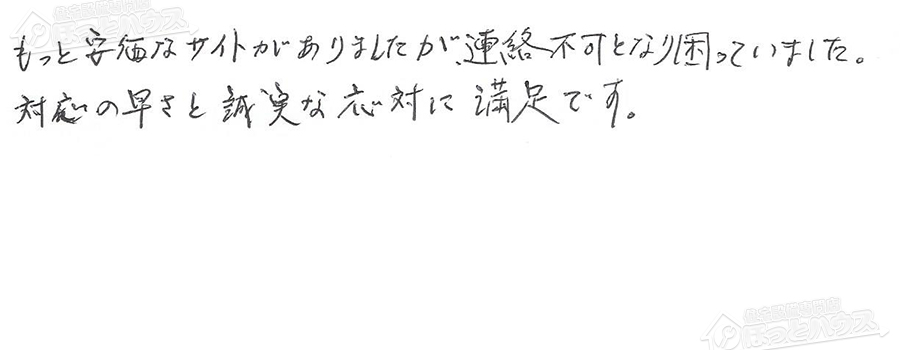 もっと安価なサイトがありましたが、連絡不可となり困っていました。
対応の早さと誠実な応対に満足です。
住宅設備専門店
ほっとハウス